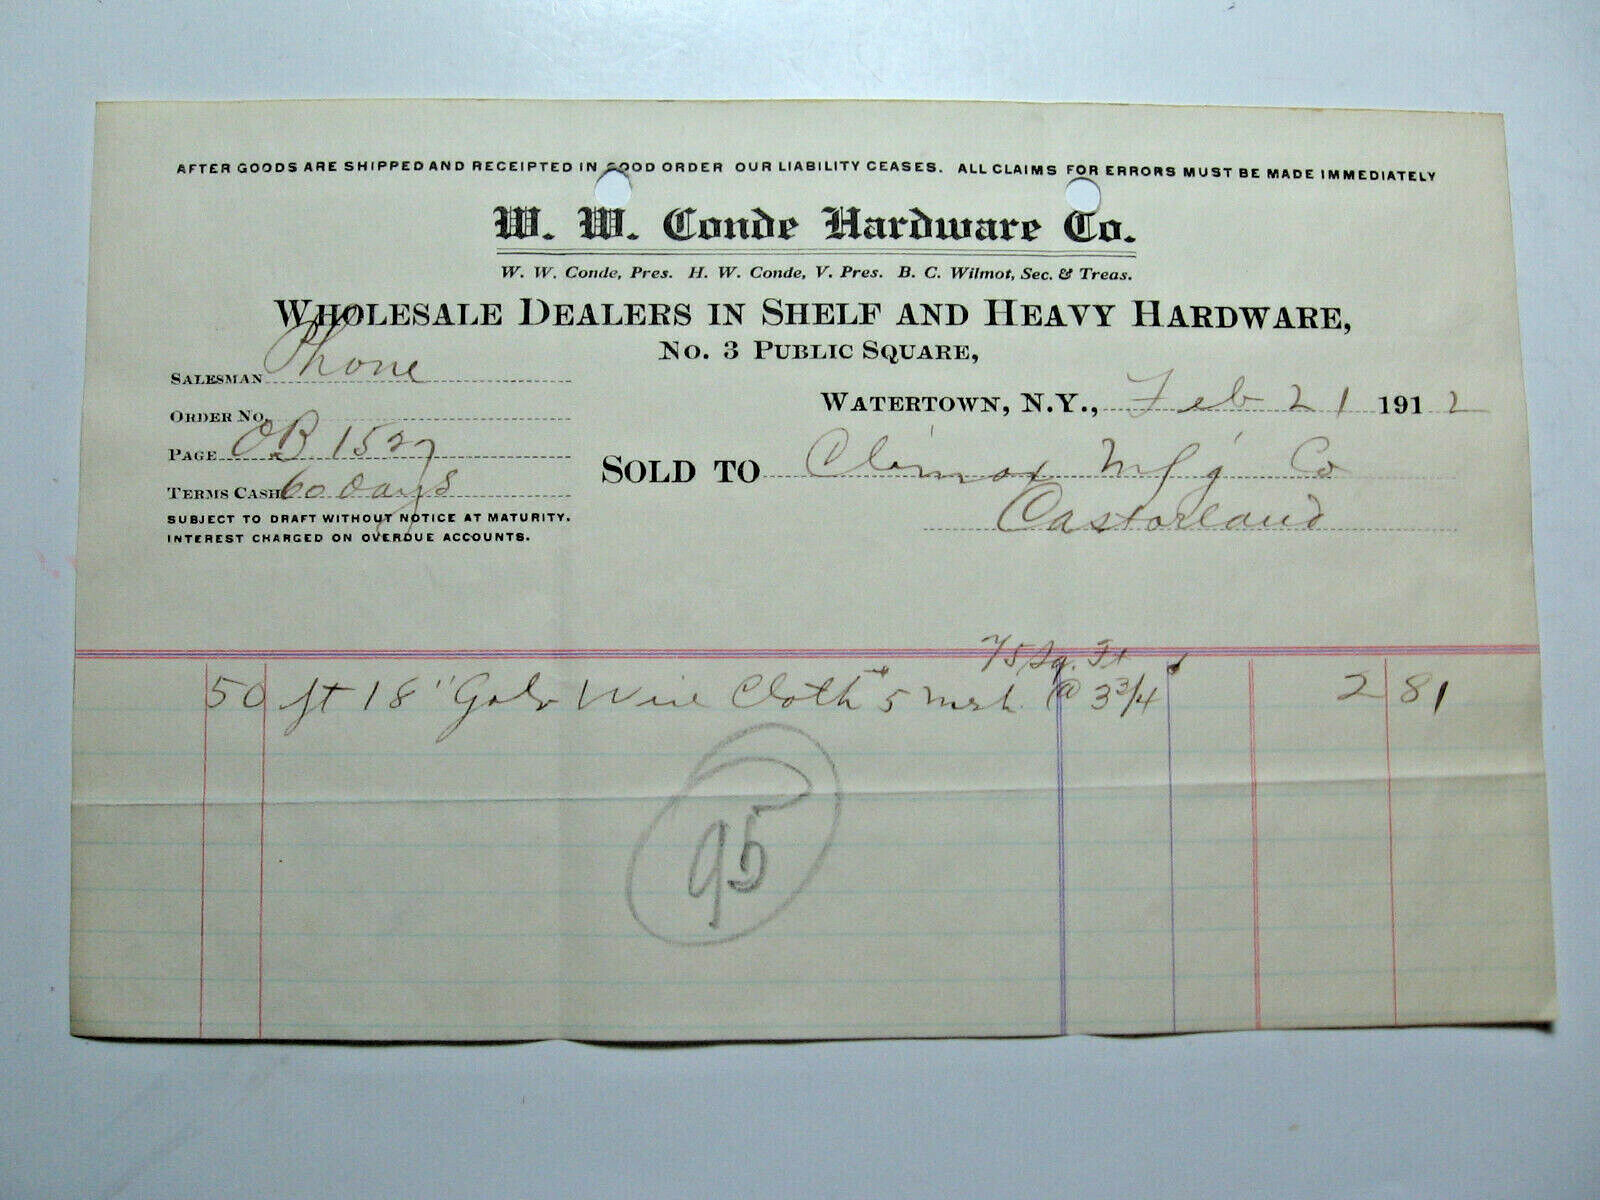 AFTER GOODS ARE SHIPPED AND RECEIPTED IN GOOD ORDER OUR LIABILITY CEASES. ALL CLAIMS FOR ERRORS MUST BE MADE IMMEDIATELY
W. W. Conde Hardware Co.
W. W. Conde, Pres. H. W. Conde, V. Pres. B. C. Wilmot, Sec. & Treas.
WHOLESALE DEALERS IN SHELF AND HEAVY HARDWARE,
No. 3 PUBLIC SQUARE,
SALESMAN Phone
WATERTOWN, N.Y., Feb 21 1912
ORDER NO.
PAGE OB 1527
SOLD TO Climax Mf'g Co
TERMS CASH 60 days
Castorland
SUBJECT TO DRAFT WITHOUT NOTICE AT MATURITY.
INTEREST CHARGED ON OVERDUE ACCOUNTS.
75 Sq. Ft
50 ft 18" Galv Wire Cloth 5 mesh @ 3 3/4 2 81
95